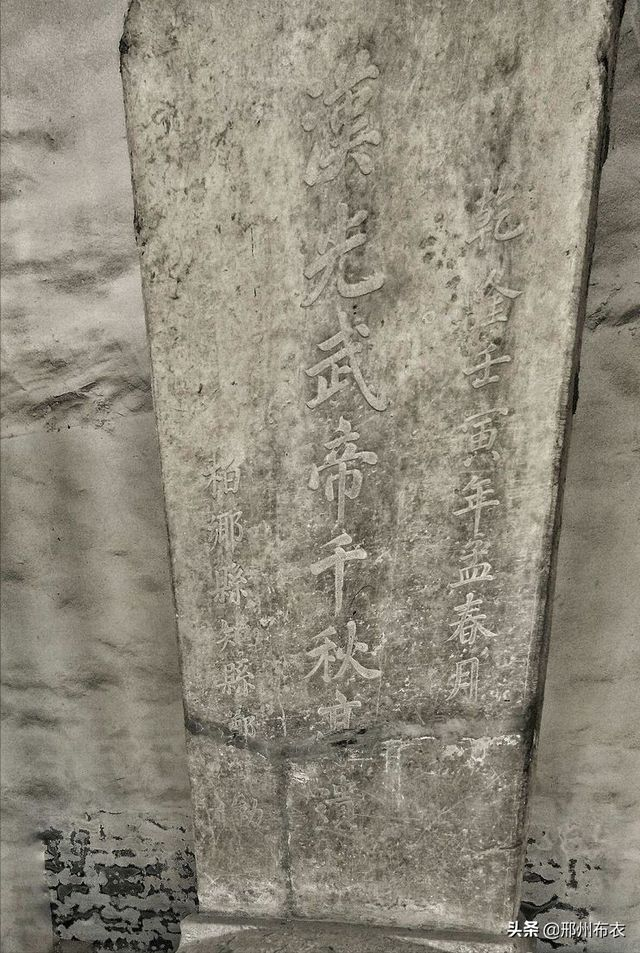 乾隆壬寅年孟春月
漢光武帝千秋亭遺
柏鄉縣知縣
头条 @邢州布衣